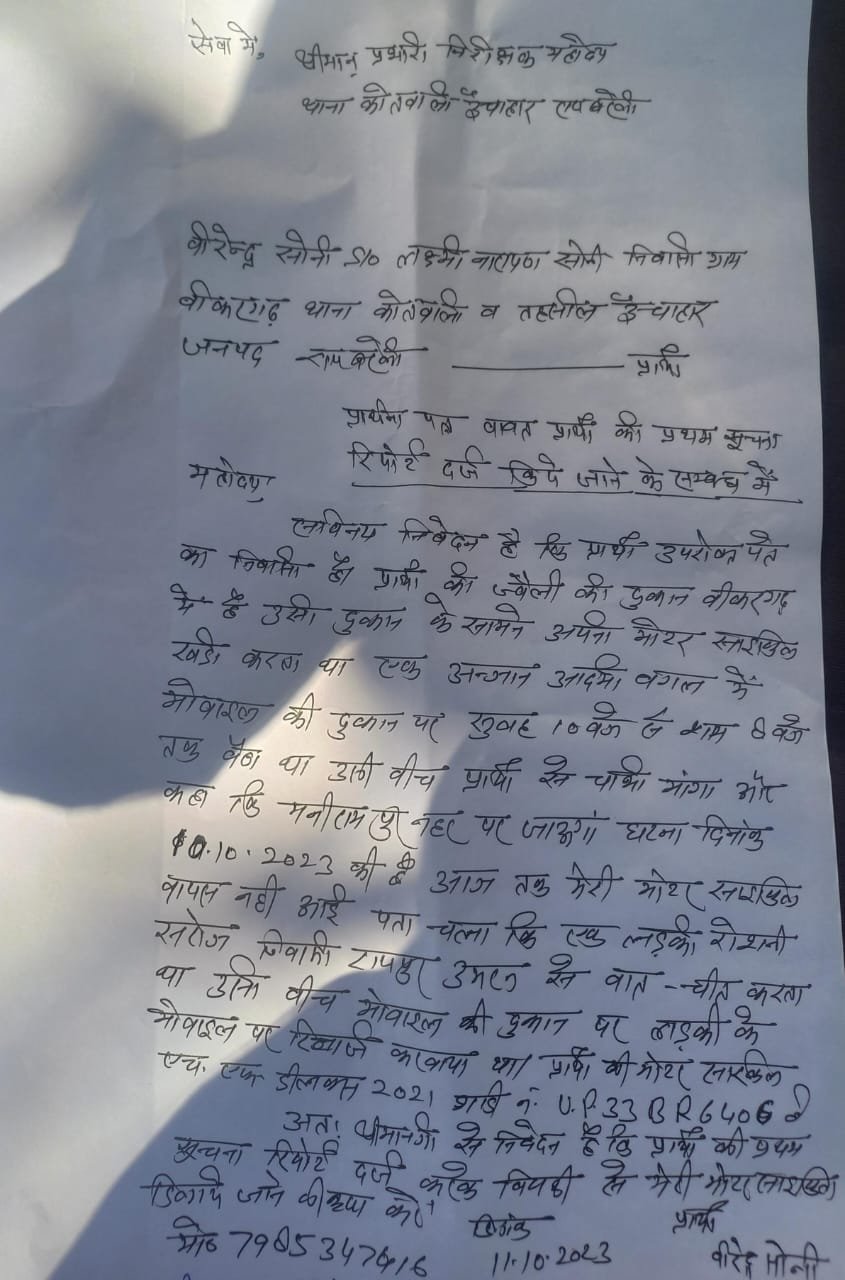 सेवा में,
श्रीमान् प्रभारी निरीक्षक महोदय
थाना कोतवाली ऊँचाहार रायबरेली
वीरेन्द्र सोनी S/o लक्ष्मी नारायण सोनी निवासी ग्राम
वीकरगढ़ थाना कोतवाली व तहसील ऊँचाहार
जनपद रायबरेली ———— प्रार्थी
प्रार्थना पत्र वावत प्रार्थी की प्रथम सूचना
रिपोर्ट दर्ज किये जाने के सम्बन्ध में
महोदय,
सविनय निवेदन है कि प्रार्थी उपरोक्त पते
का निवासी है। प्रार्थी की ज्वैली की दुकान वीकरगढ़
में है उसी दुकान के सामने अपनी मोटर साइकिल
खड़ी करता था एक अन्जान आदमी वगल में
मोवाइल की दुकान पर सुवह 10 वजे से शाम 8 वजे
तक वैठा था उसी वीच प्रार्थी से चाभी मांगा और
कहा कि मनीरामपुर नहर पर जाऊगां घटना दिनांक
10.10.2023 की है आज तक मेरी मोटर साइकिल
वापस नही आई पता चला कि एक लड़की रोशनी
सरोज निवासी रामपुर से वात-चीत करता
था उसी वीच मोवाइल की दुकान पर लड़की के
मोवाइल पर रिचार्ज करवाया था। प्रार्थी की मोटर साइकिल
एच. एफ. डीलक्स 2021 गाड़ी नं. U.P.33 BR6406 है
अतः श्रीमानजी से निवेदन है कि प्रार्थी की प्रथम
सूचना रिपोर्ट दर्ज करके विपक्षी से मेरी मोटर साइकिल
दिलाये जाने की कृपा करें
दिनांक प्रार्थी
मो० 11.10.2023 वीरेन्द्र सोनी